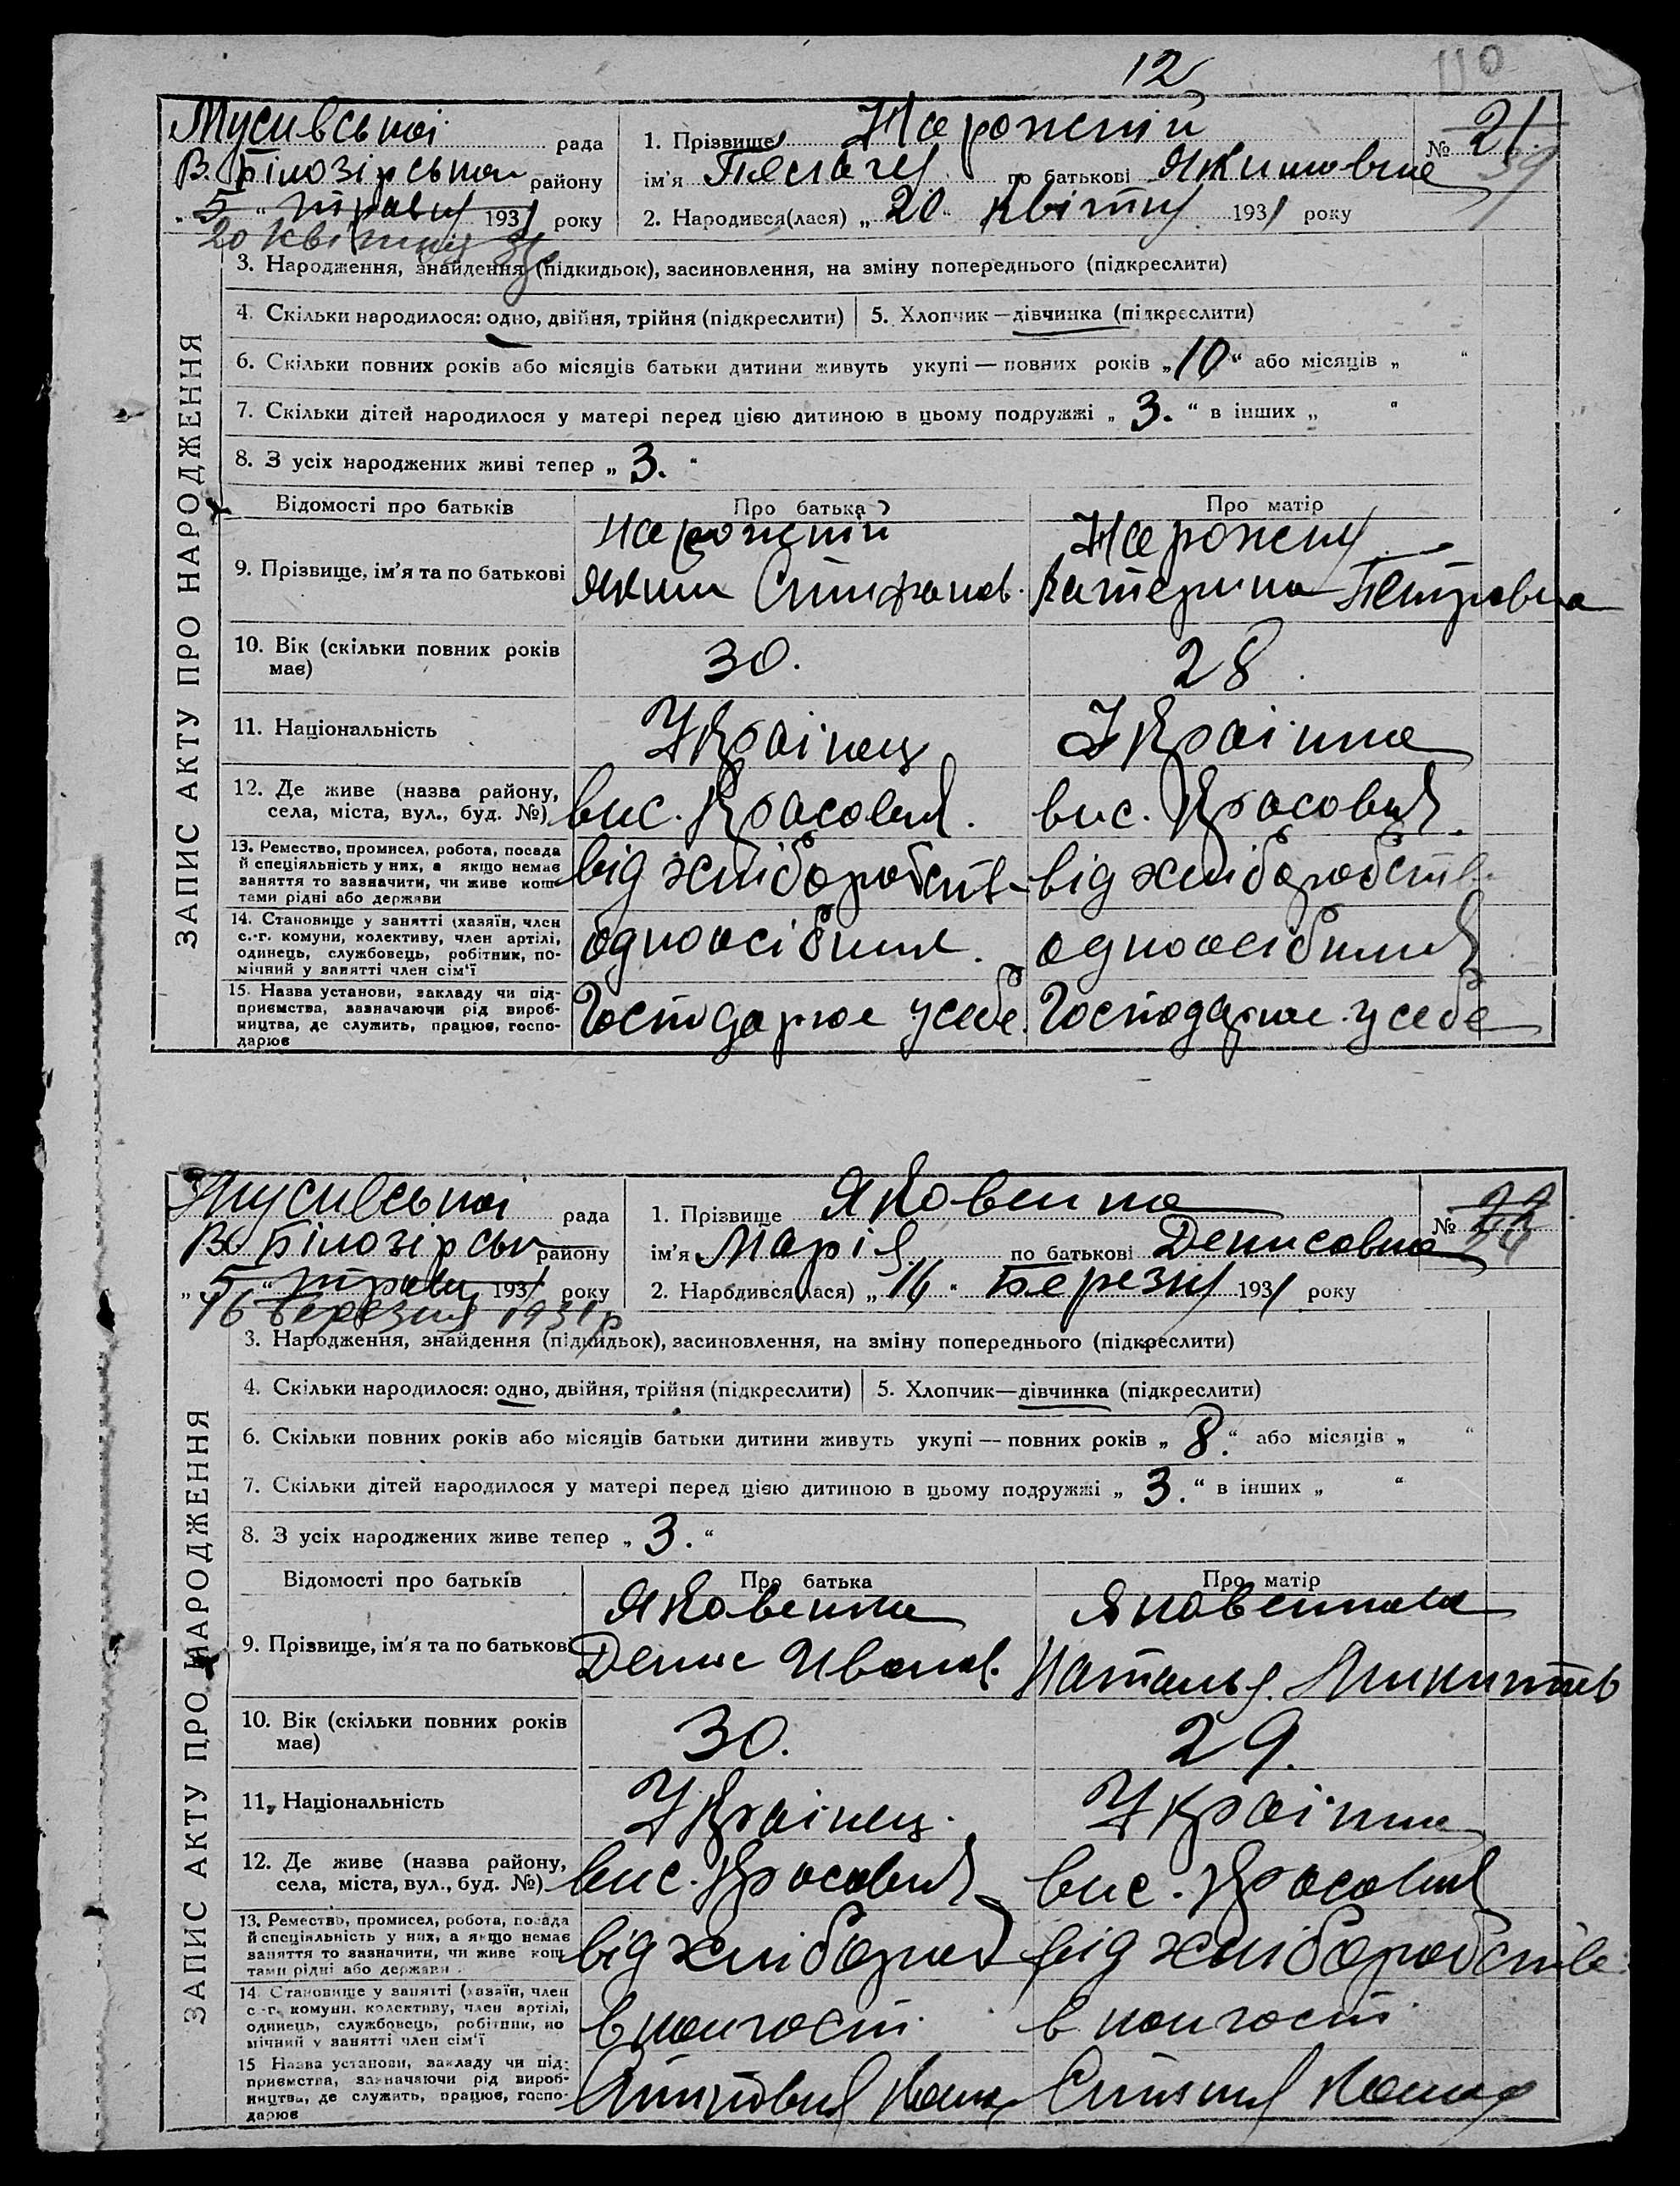 12
110
Мусивської рада
В. Білозірською району
„5“ травня 1931 року
20 квітня 31р
1. Прізвище Нарожній
№ 21
39
ім'я Пелагея по батькові Якимовна
2. Народився(лася) „20“ квітня 1931 року
ЗАПИС АКТУ ПРО НАРОДЖЕННЯ
3. Народження, знайдення (підкидьок), засиновлення, на зміну попереднього (підкреслити)
4. Скільки народилося: одно, двійня, трійня (підкреслити)
5. Хлопчик—дівчинка (підкреслити)
6. Скільки повних років або місяців батьки дитини живуть укупі — повних років „10“ або місяців „ “
7. Скільки дітей народилося у матері перед цією дитиною в цьому подружжі „3.“ в інших „ “
8. З усіх народжених живі тепер „3.“
Відомості про батьків
Про батька
Про матір
9. Прізвище, ім'я та по батькові
Нарожній
Яким Стифанов.
Нарожня
Катерина Петровна
10. Вік (скільки повних років
має)
30.
28
11. Національність
Українец
Українка
12. Де живе (назва району,
села, міста, вул., буд. №)
вис. Красовия.
вис. Красовия.
13. Ремество, промисел, робота, посада
й спеціяльність у них, а якщо немає
заняття то зазначити, чи живе кош-
тами рідні або держави
від хліборобств
від хліборобств
14. Становище у занятті (хазяїн, член
с.-г. комуни, колективу, член артілі,
одинець, службовець, робітник, по-
мічний у занятті член сім'ї
одноосібник.
одноосібния
15. Назва установи, закладу чи під-
приємства, зазначаючи рід вироб-
ництва, де служить, працює, госпо-
дарює
Господарює у себе.
Господарює у себе
Мусивської рада
В. Білозірськ району
„5“ травня 1931 року
16 березня 1931р
1. Прізвище Яковенко
№ 22
ім'я Марія по батькові Денисовна
2. Народився(лася) „16“ Березня 1931 року
ЗАПИС АКТУ ПРО НАРОДЖЕННЯ
3. Народження, знайдення (підкидьок), засиновлення, на зміну попереднього (підкреслити)
4. Скільки народилося: одно, двійня, трійня (підкреслити)
5. Хлопчик—дівчинка (підкреслити)
6. Скільки повних років або місяців батьки дитини живуть укупі — повних років „8.“ або місяців „ “
7. Скільки дітей народилося у матері перед цією дитиною в цьому подружжі „3.“ в інших „ “
8. З усіх народжених живе тепер „3.“
Відомості про батьків
Про батька
Про матір
9. Прізвище, ім'я та по батькові
Яковенко
Денис Иванов.
Яковенкова
Наталья Микитов
10. Вік (скільки повних років
має)
30.
29.
11. Національність
Українец.
Українка
12. Де живе (назва району,
села, міста, вул., буд. №)
вис. Красовия
вис. Красовия
13. Ремество, промисел, робота, посада
й спеціяльність у них, а якщо немає
заняття то зазначити, чи живе кош-
тами рідні або держави
від хлібороб
від хліборобств
14. Становище у занятті (хазяїн, член
с.-г. комуни, колективу, член артілі,
одинець, службовець, робітник, по
мічний у занятті член сім'ї
в колгосп.
в колгосп
15 Назва установи, закладу чи під-
приємства, зазначаючи рід вироб-
ництва, де служить, працює, госпо-
дарює